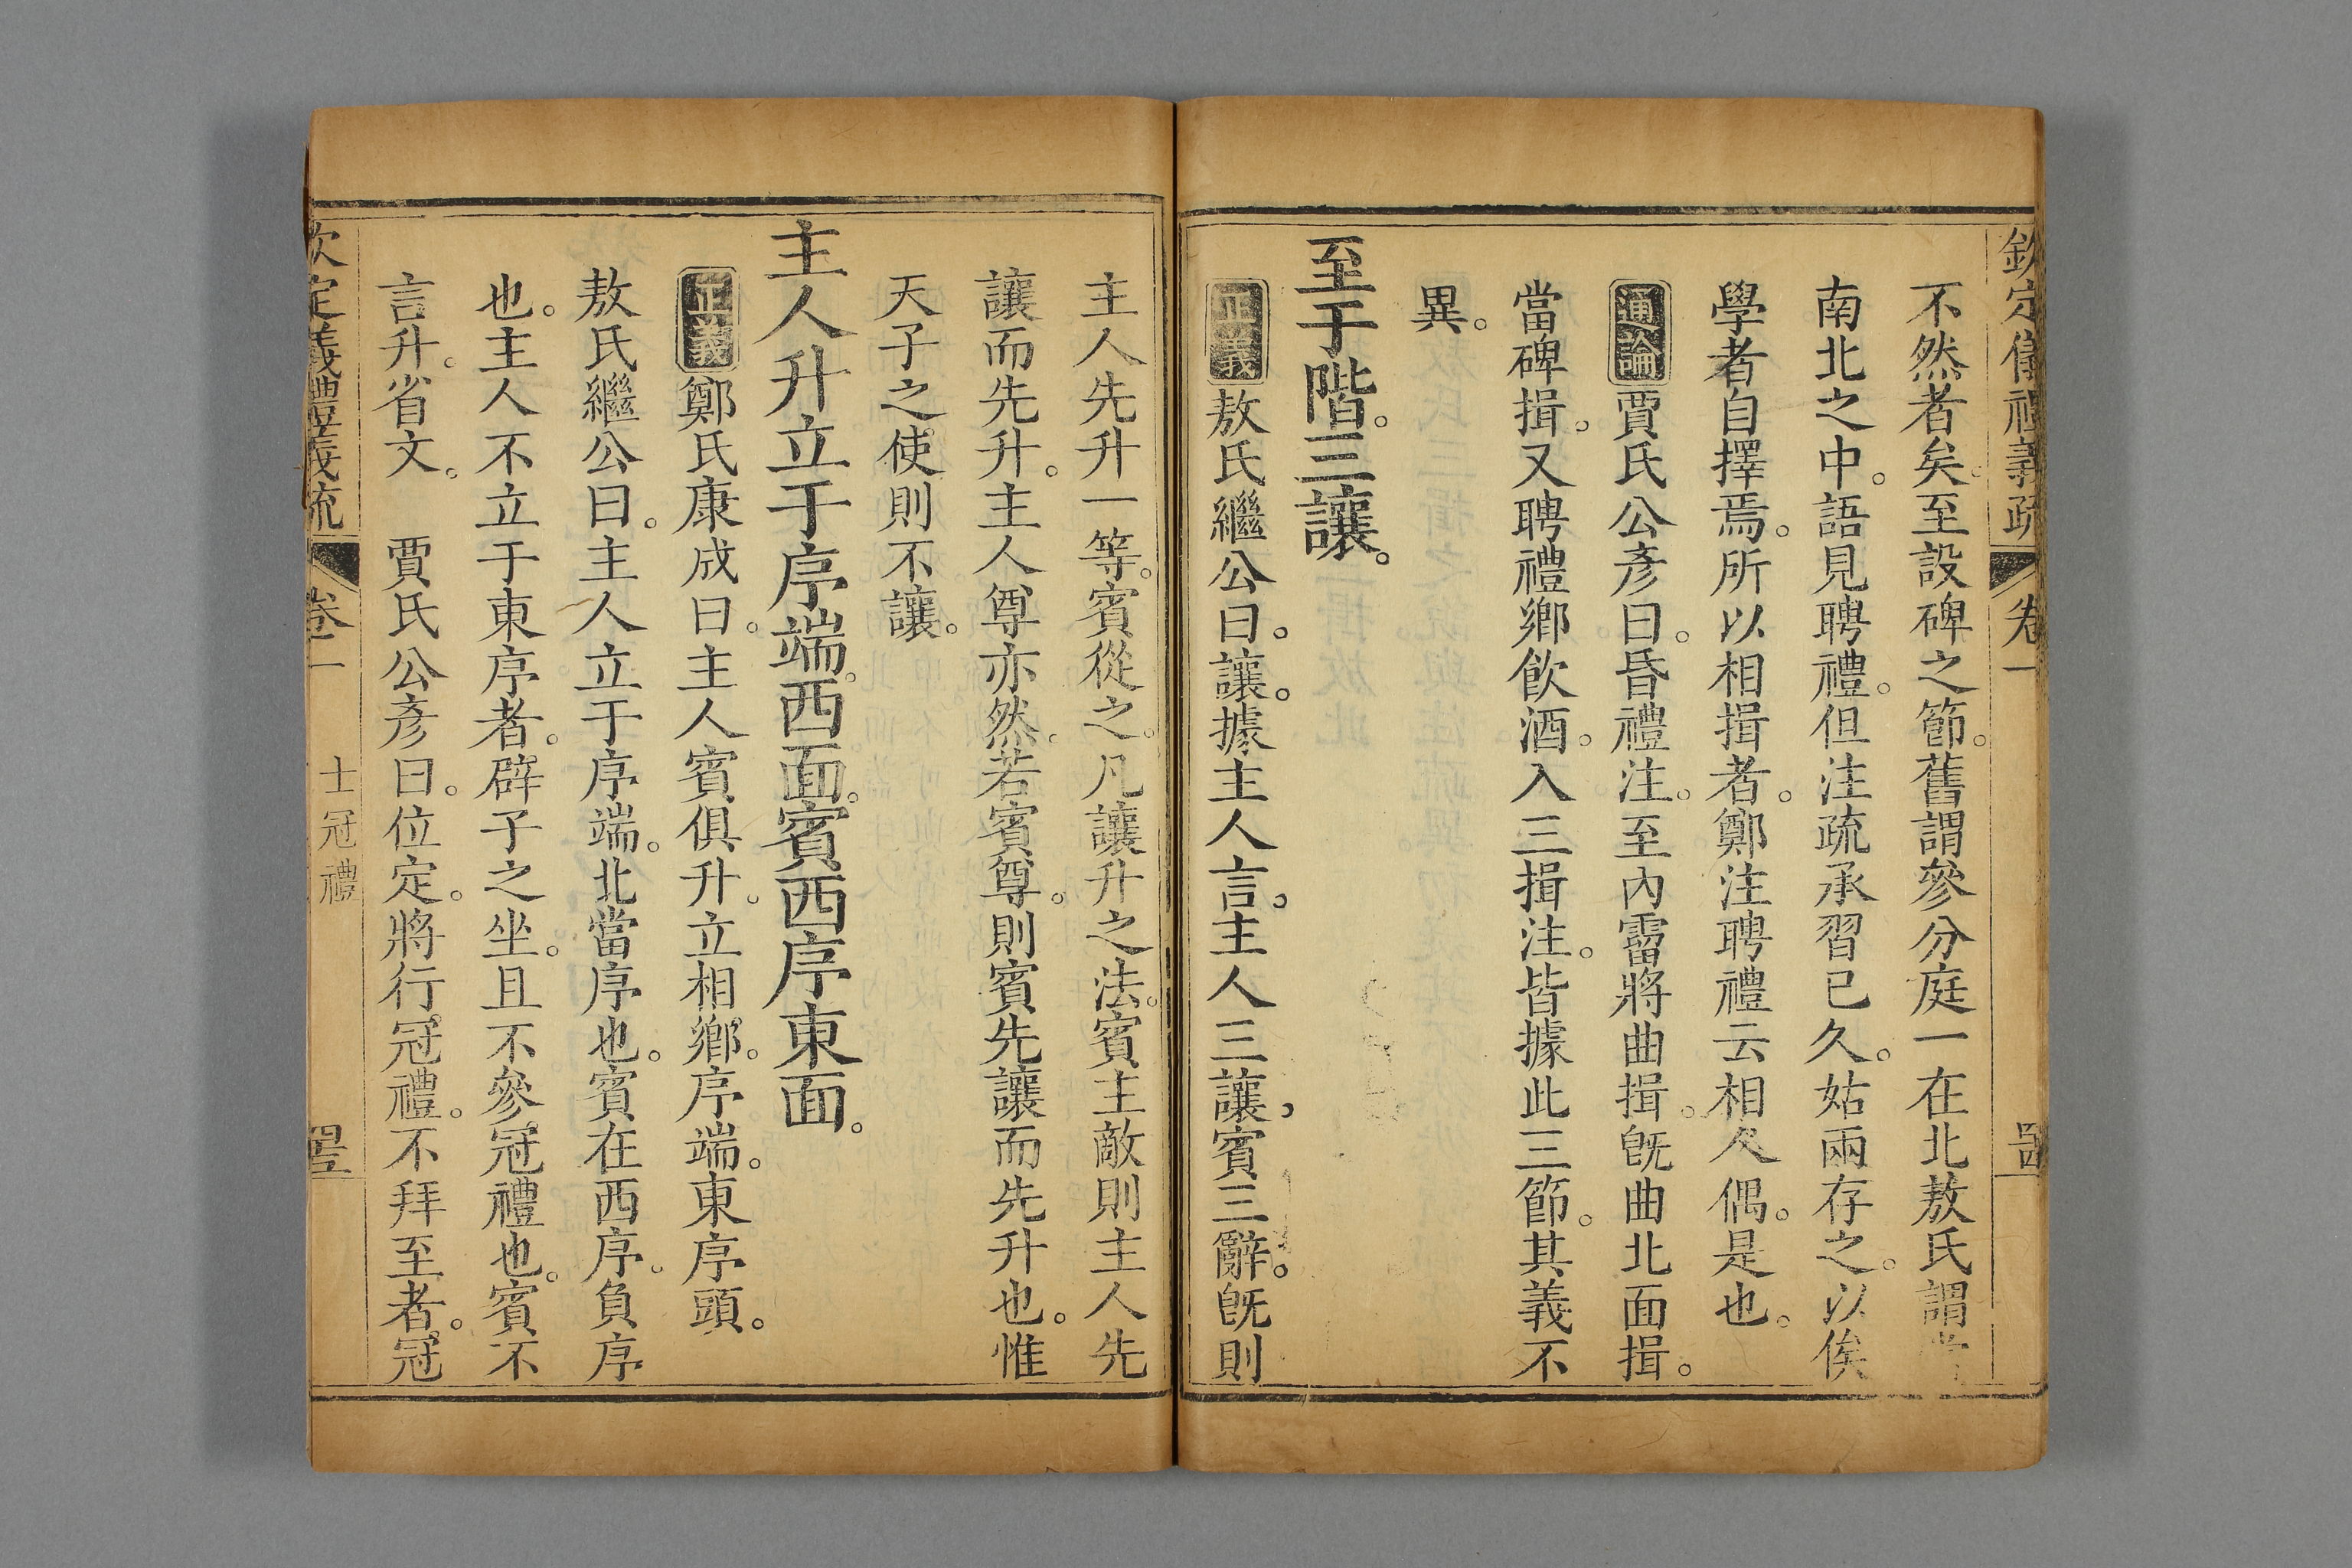 欽定儀禮義疏 卷一 四四
不然者矣。至設碑之節。舊謂參分庭一在北敖氏謂
南北之中。語見聘禮。但注疏承習已久。姑兩存之。以俟
學者自擇焉。所以相揖者。鄭注聘禮云相人偶。是也。
通論賈氏公彥曰。昏禮注。至內霤將曲揖。旣曲北面揖。
當碑揖。又聘禮鄉飮酒。入三揖注。皆據此三節。其義不
異。
至于階。三讓。
正義敖氏繼公曰。讓。據主人言。主人三讓。賓三辭。旣則
主人先升一等。賓從之。凡讓升之法。賓主敵則主人先
讓而先升。主人尊亦然。若賓尊。則賓先讓而先升也。惟
天子之使則不讓。
主人升立于序端。西面。賓西序東面。
正義鄭氏康成曰。主人賓俱升。立相鄉。序端。東序頭。
敖氏繼公曰。主人立于序端。北當序也。賓在西序。負序
也。主人不立于東序者。辟子之坐。且不參冠禮也。賓不
言升。省文。 賈氏公彥曰。位定。將行冠禮。不拜至者。冠
欽定儀禮義疏 卷一 士冠禮 四五